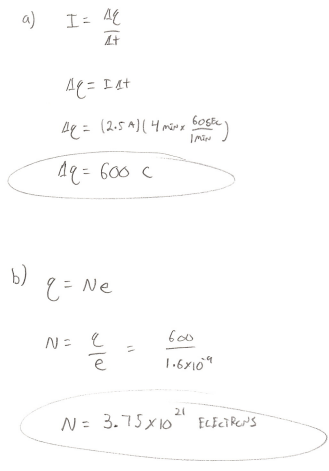 a) I = Δq/Δt
Δq = IΔt
Δq = (2.5 A)(4 min x 60sec/1min)
Δq = 600 C
b) q = Ne
N = q/e = 600/1.6x10^-9
N = 3.75x10^21 ELECTRONS